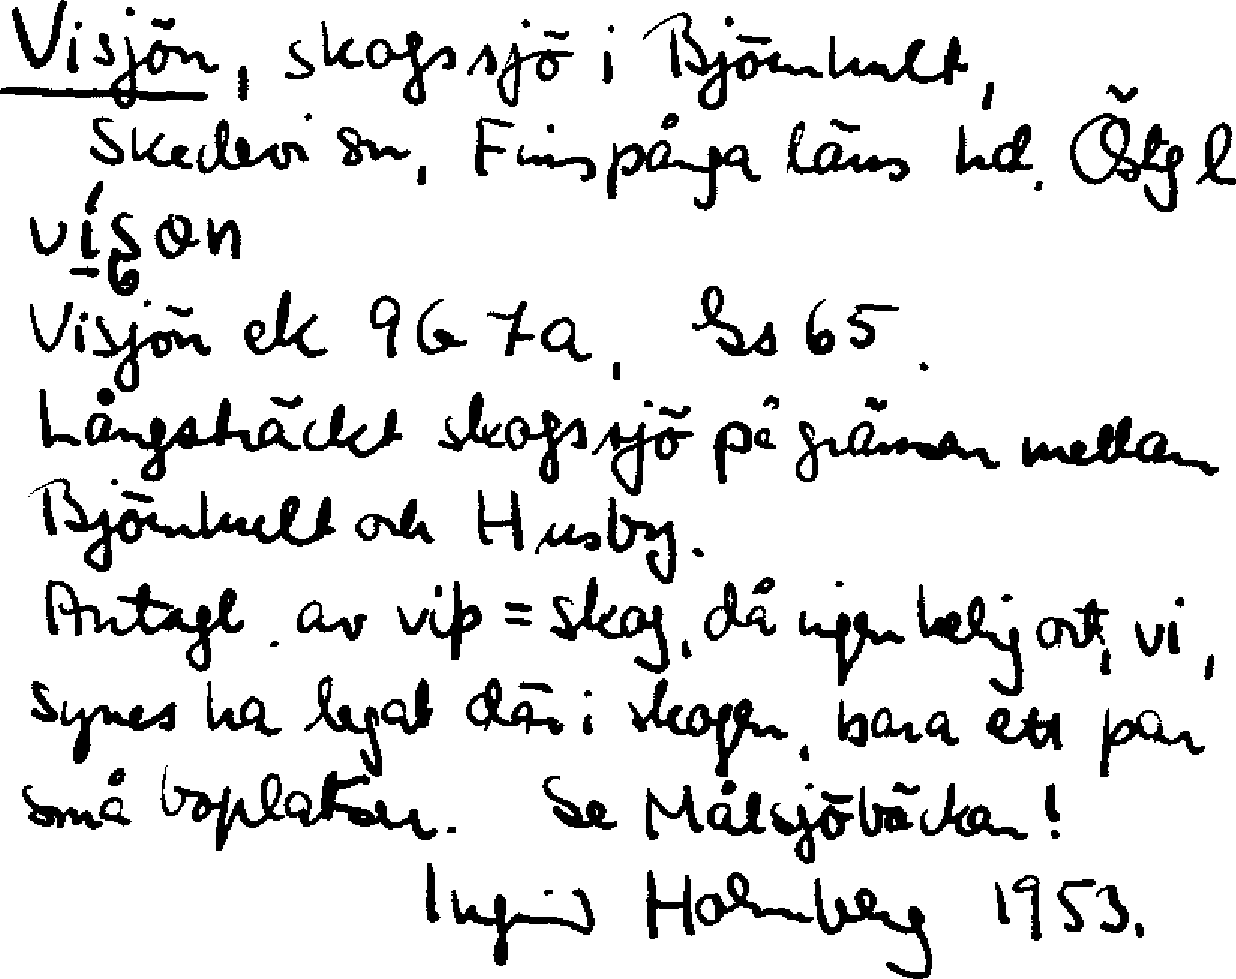 Visjön, skogssjö i Björnhult,
Skedevi sn, Finspånga läns hd. Östgl
Visjön ek 9G 7a, Gs 65.
Långsträckt skogssjö på gränsen mellan
Björnhult och Husby.
Antagl. av viþ = skog, då ingen helig ort, vi,
synes ha legat där i skogen, bara ett par
små boplatser. Se Målsjöbäcken!
Ingrid Holmberg 1953.